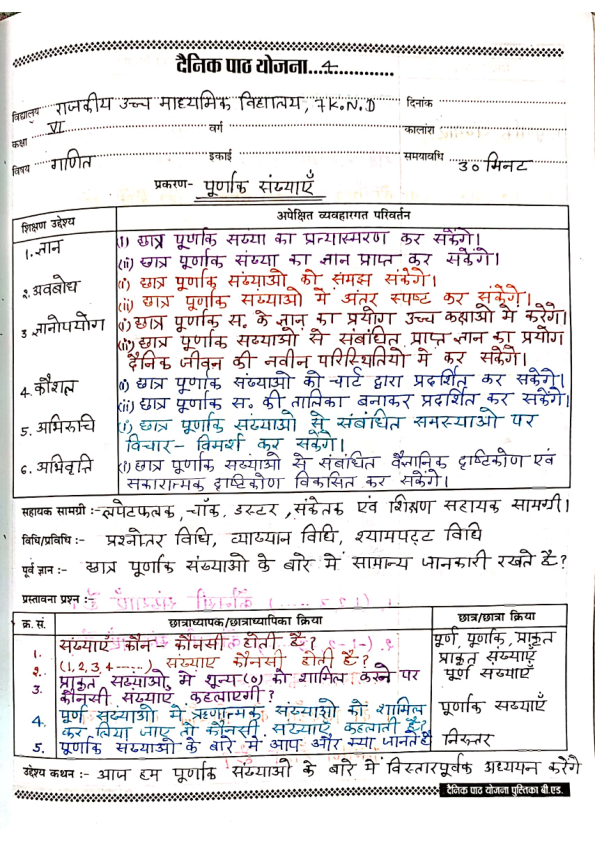 दैनिक पाठ योजना...4............
विद्यालय राजकीय उच्च माध्यमिक विद्यालय, 7K.N.D दिनांक
कक्षा VI वर्ग कालांश
विषय गणित इकाई समयावधि 30 मिनट
प्रकरण- पूर्णाक संख्याएँ
शिक्षण उद्देश्य अपेक्षित व्यवहारगत परिवर्तन
1. ज्ञान (i) छात्र पूर्णाक सख्या का प्रत्यास्मरण कर सकेंगे।
(ii) छात्र पूर्णाक संख्या का ज्ञान प्राप्त कर सकेंगे।
2. अवबोध (i) छात्र पूर्णाक संख्याओ को समझ सकेंगे।
(ii) छात्र पूर्णाक सख्याओ में अंतर स्पष्ट कर सकेंगे।
3 ज्ञानोपयोग (i) छात्र पूर्णाक स. के ज्ञान का प्रयोग उच्च कक्षाओ में करेंगे।
(ii) छात्र पूर्णाक सख्याओ से संबंधित प्राप्त ज्ञान का प्रयोग
दैनिक जीवन की नवीन परिस्थितियो में कर सकेंगे।
4. कौशल (i) छात्र पूर्णाक संख्याओ को चार्ट द्वारा प्रदर्शित कर सकेंगे।
(ii) छात्र पूर्णाक स. की तालिका बनाकर प्रदर्शित कर सकेंगे।
5. अभिरुचि (i) छात्र पूर्णाक सख्याओ से संबंधित समस्याओ पर
विचार- विमर्श कर सकेंगे।
6. अभिवृति (i) छात्र पूर्णाक सख्याओ से संबंधित वैज्ञानिक दृष्टिकोण एवं
सकारात्मक दृष्टिकोण विकसित कर सकेंगे।
सहायक सामग्री :- लपेटफलक, चॉक, डस्टर, संकेतक एवं शिक्षण सहायक सामगी।
विधि/प्रविधि :- प्रश्नोतर विधि, व्याख्यान विधि, श्यामपट्ट विधि
पूर्व ज्ञान :- छात्र पूर्णाक संख्याओ के बारे में सामान्य जानकारी रखते है?
प्रस्तावना प्रश्न :-
क्र. सं. छात्राध्यापक/छात्राध्यापिका क्रिया छात्र/छात्रा क्रिया
1. संख्याएँ कौन - कौनसी होती है? पूर्ण, पूर्णाक, प्राकृत
2. (1, 2, 3, 4 -----) संख्याए कौनसी होती है? प्राकृत संख्याएँ
3. प्राकृत सख्याओ में शून्य (0) को शामिल करने पर पूर्ण सख्याएँ
कौनसी संख्याएं कहलाएगी?
4. पूर्ण सख्याओ में ऋणात्मक संख्याओ को शामिल पूर्णाक संख्याएँ
कर लिया जाए तो कौनसी संख्याएँ कहलाती है?
5. पूर्णाक संख्याओ के बारे में आप और क्या जानते है निरुत्तर
उद्देश्य कथन :- आज हम पूर्णाक संख्याओ के बारे में विस्तारपूर्वक अध्ययन करेंगे
दैनिक पाठ योजना पुस्तिका बी.एड.